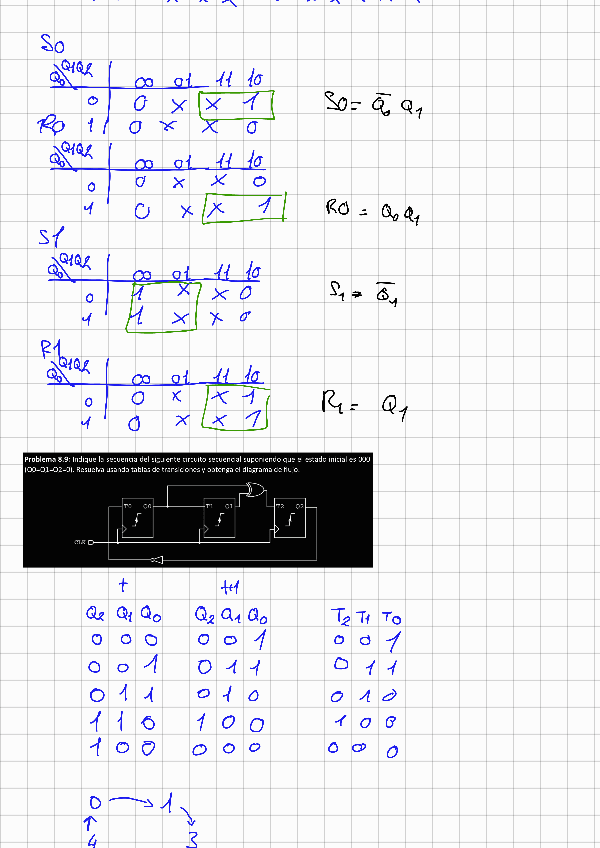 S0
Q0 Q1Q2 00 01 11 10
0 0 x x 1 S0 = Q̅0 Q1
R0 1 0 x x 0
Q0 Q1Q2 00 01 11 10
0 0 x x 0
1 0 x x 1 R0 = Q0 Q1
S1
Q0 Q1Q2 00 01 11 10
0 1 x x 0 S1 = Q̅1
1 1 x x 0
R1
Q0 Q1Q2 00 01 11 10
0 0 x x 1 R1 = Q1
1 0 x x 1
Problema 8.9: Indique la secuencia del siguiente circuito secuencial suponiendo que el estado inicial es 000
(Q0=Q1=Q2=0). Resuelva usando tablas de transiciones y obtenga el diagrama de flujo.
T0 Q0 T1 Q1 T2 Q2
CLK
t t+1
Q2 Q1 Q0 Q2 Q1 Q0 T2 T1 T0
0 0 0 0 0 1 0 0 1
0 0 1 0 1 1 0 1 1
0 1 1 0 1 0 0 1 0
1 1 0 1 0 0 1 0 0
1 0 0 0 0 0 0 0 0
0 → 1
4 3